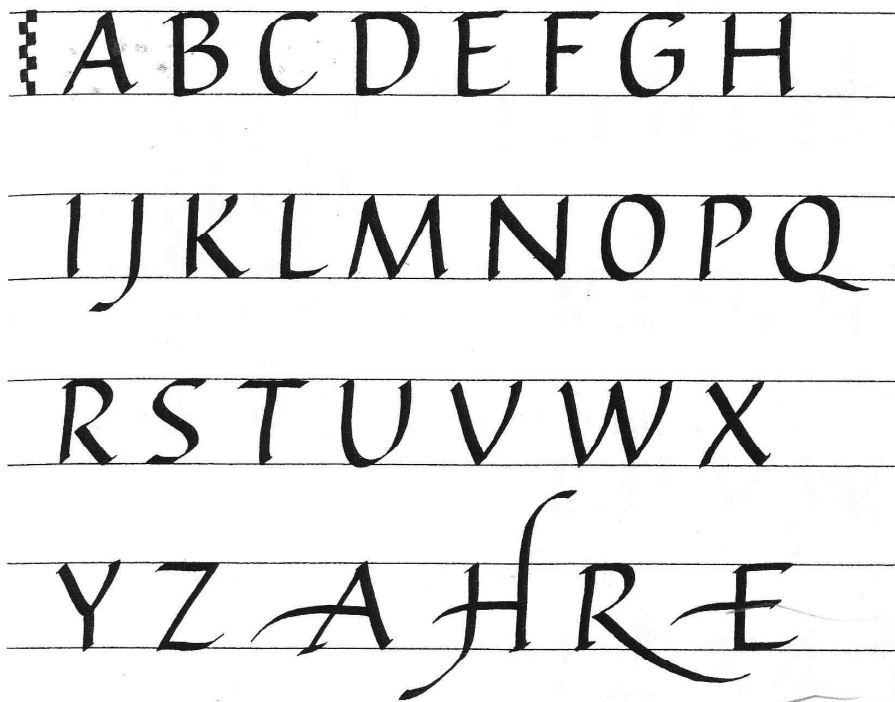 A B C D E F G H
I J K L M N O P Q
R S T U V W X
Y Z A H R E